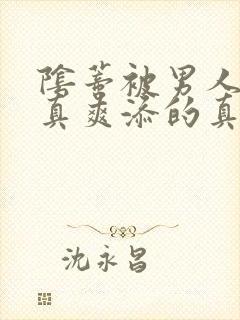 陰蒂被男人
真爽添的真
沈永昌